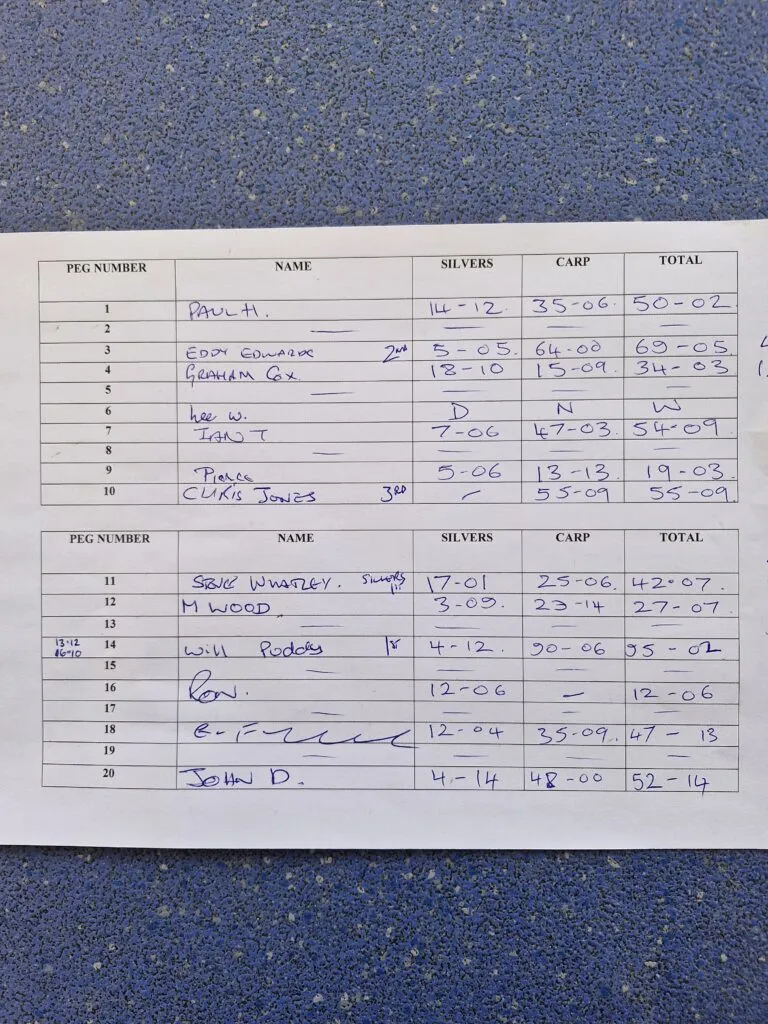 PEG NUMBER NAME SILVERS CARP TOTAL
1 PAUL H. 14-12 35-06. 50-02
2 — — — —
3 EDDY EDWARDS 2ND 5-05. 64-00 69-05
4 GRAHAM COX. 18-10 15-09. 34-03
5 — —
6 Lee W. D N W
7 IAN T 7-06 47-03. 54-09
8 — — — —
9 Pierce 5-06 13-13 19-03
10 CHRIS JONES 3RD — 55-09 55-09
PEG NUMBER NAME SILVERS CARP TOTAL
11 STEVE WHATLEY. SILVERS 1st 17-01 25-06. 42-07
12 M WOOD 3-09. 23-14 27-07
13 — — — —
13-12
16-10 14 Will Poddy 1st 4-12. 90-06 95-02
15 — — — —
16 Ron. 12-06 — 12-06
17 — — — —
18 12-04 35-09. 47-13
19 — — — —
20 JOHN D. 4-14 48-00 52-14